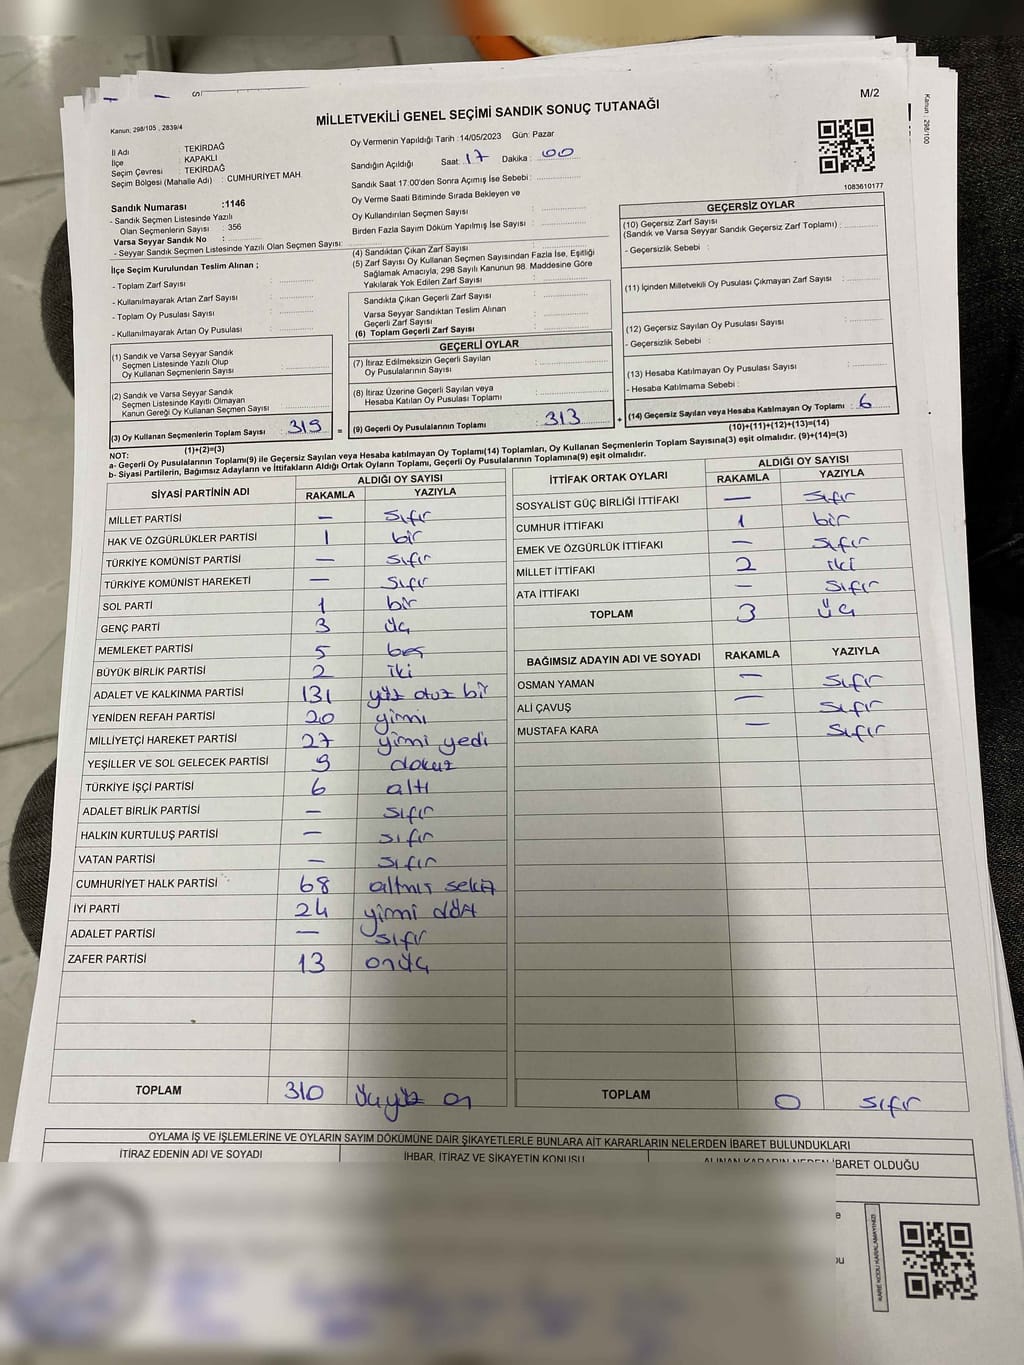 M/2
MİLLETVEKİLİ GENEL SEÇİMİ SANDIK SONUÇ TUTANAĞI
Kanun: 298/105 , 2839/4
Kanun: 298/100
İl Adı : TEKİRDAĞ
İlçe : KAPAKLI
Seçim Çevresi : TEKİRDAĞ
Seçim Bölgesi (Mahalle Adı) : CUMHURİYET MAH.
Oy Vermenin Yapıldığı Tarih :14/05/2023 Gün: Pazar
Sandığın Açıldığı Saat: 17 Dakika : 00
Sandık Saat 17:00'den Sonra Açılmış İse Sebebi :
Oy Verme Saati Bitiminde Sırada Bekleyen ve
Oy Kullandırılan Seçmen Sayısı :
Birden Fazla Sayım Döküm Yapılmış İse Sayısı :
1083610177
Sandık Numarası :1146
- Sandık Seçmen Listesinde Yazılı
Olan Seçmenlerin Sayısı : 356
Varsa Seyyar Sandık No :
- Seyyar Sandık Seçmen Listesinde Yazılı Olan Seçmen Sayısı:
İlçe Seçim Kurulundan Teslim Alınan ;
- Toplam Zarf Sayısı :
- Kullanılmayarak Artan Zarf Sayısı :
- Toplam Oy Pusulası Sayısı :
- Kullanılmayarak Artan Oy Pusulası :
(1) Sandık ve Varsa Seyyar Sandık
Seçmen Listesinde Yazılı Olup
Oy Kullanan Seçmenlerin Sayısı :
(2) Sandık ve Varsa Seyyar Sandık
Seçmen Listesinde Kayıtlı Olmayan
Kanun Gereği Oy Kullanan Seçmen Sayısı :
(3) Oy Kullanan Seçmenlerin Toplam Sayısı : 319 =
(1)+(2)=(3)
(4) Sandıktan Çıkan Zarf Sayısı :
(5) Zarf Sayısı Oy Kullanan Seçmen Sayısından Fazla İse, Eşitliği
Sağlamak Amacıyla, 298 Sayılı Kanunun 98. Maddesine Göre
Yakılarak Yok Edilen Zarf Sayısı :
Sandıkta Çıkan Geçerli Zarf Sayısı :
Varsa Seyyar Sandıktan Teslim Alınan
Geçerli Zarf Sayısı :
(6) Toplam Geçerli Zarf Sayısı :
GEÇERLİ OYLAR
(7) İtiraz Edilmeksizin Geçerli Sayılan
Oy Pusulalarının Sayısı :
(8) İtiraz Üzerine Geçerli Sayılan veya
Hesaba Katılan Oy Pusulası Toplamı :
(9) Geçerli Oy Pusulalarının Toplamı : 313 +
GEÇERSİZ OYLAR
(10) Geçersiz Zarf Sayısı
(Sandık ve Varsa Seyyar Sandık Geçersiz Zarf Toplamı) :
- Geçersizlik Sebebi :
(11) İçinden Milletvekili Oy Pusulası Çıkmayan Zarf Sayısı :
(12) Geçersiz Sayılan Oy Pusulası Sayısı :
- Geçersizlik Sebebi :
(13) Hesaba Katılmayan Oy Pusulası Sayısı :
- Hesaba Katılmama Sebebi :
(14) Geçersiz Sayılan veya Hesaba Katılmayan Oy Toplamı : 6
(10)+(11)+(12)+(13)=(14)
NOT:
a- Geçerli Oy Pusulalarının Toplamı(9) ile Geçersiz Sayılan veya Hesaba katılmayan Oy Toplamı(14) Toplamları, Oy Kullanan Seçmenlerin Toplam Sayısına(3) eşit olmalıdır. (9)+(14)=(3)
b- Siyasi Partilerin, Bağımsız Adayların ve İttifakların Aldığı Ortak Oyların Toplamı, Geçerli Oy Pusulalarının Toplamına(9) eşit olmalıdır.
SİYASİ PARTİNİN ADI ALDIĞI OY SAYISI
RAKAMLA YAZIYLA
MİLLET PARTİSİ — sıfır
HAK VE ÖZGÜRLÜKLER PARTİSİ 1 bir
TÜRKİYE KOMÜNİST PARTİSİ — sıfır
TÜRKİYE KOMÜNİST HAREKETİ — sıfır
SOL PARTİ 1 bir
GENÇ PARTİ 3 üç
MEMLEKET PARTİSİ 5 beş
BÜYÜK BİRLİK PARTİSİ 2 iki
ADALET VE KALKINMA PARTİSİ 131 yüz otuz bir
YENİDEN REFAH PARTİSİ 20 yirmi
MİLLİYETÇİ HAREKET PARTİSİ 27 yirmi yedi
YEŞİLLER VE SOL GELECEK PARTİSİ 9 dokuz
TÜRKİYE İŞÇİ PARTİSİ 6 altı
ADALET BİRLİK PARTİSİ — sıfır
HALKIN KURTULUŞ PARTİSİ — sıfır
VATAN PARTİSİ — sıfır
CUMHURİYET HALK PARTİSİ 68 altmış sekiz
İYİ PARTİ 24 yirmi dört
ADALET PARTİSİ — sıfır
ZAFER PARTİSİ 13 onüç
TOPLAM 310 üçyüz on
İTTİFAK ORTAK OYLARI ALDIĞI OY SAYISI
RAKAMLA YAZIYLA
SOSYALİST GÜÇ BİRLİĞİ İTTİFAKI — sıfır
CUMHUR İTTİFAKI 1 bir
EMEK VE ÖZGÜRLÜK İTTİFAKI — sıfır
MİLLET İTTİFAKI 2 iki
ATA İTTİFAKI — sıfır
TOPLAM 3 üç
BAĞIMSIZ ADAYIN ADI VE SOYADI RAKAMLA YAZIYLA
OSMAN YAMAN — sıfır
ALİ ÇAVUŞ — sıfır
MUSTAFA KARA — sıfır
TOPLAM 0 sıfır
OYLAMA İŞ VE İŞLEMLERİNE VE OYLARIN SAYIM DÖKÜMÜNE DAİR ŞİKAYETLERLE BUNLARA AİT KARARLARIN NELERDEN İBARET BULUNDUKLARI
İTİRAZ EDENİN ADI VE SOYADI İHBAR, İTİRAZ VE ŞİKAYETİN KONUSU ALINAN KARARIN NEDEN İBARET OLDUĞU
KARE KODU KARALAMAYINIZ!